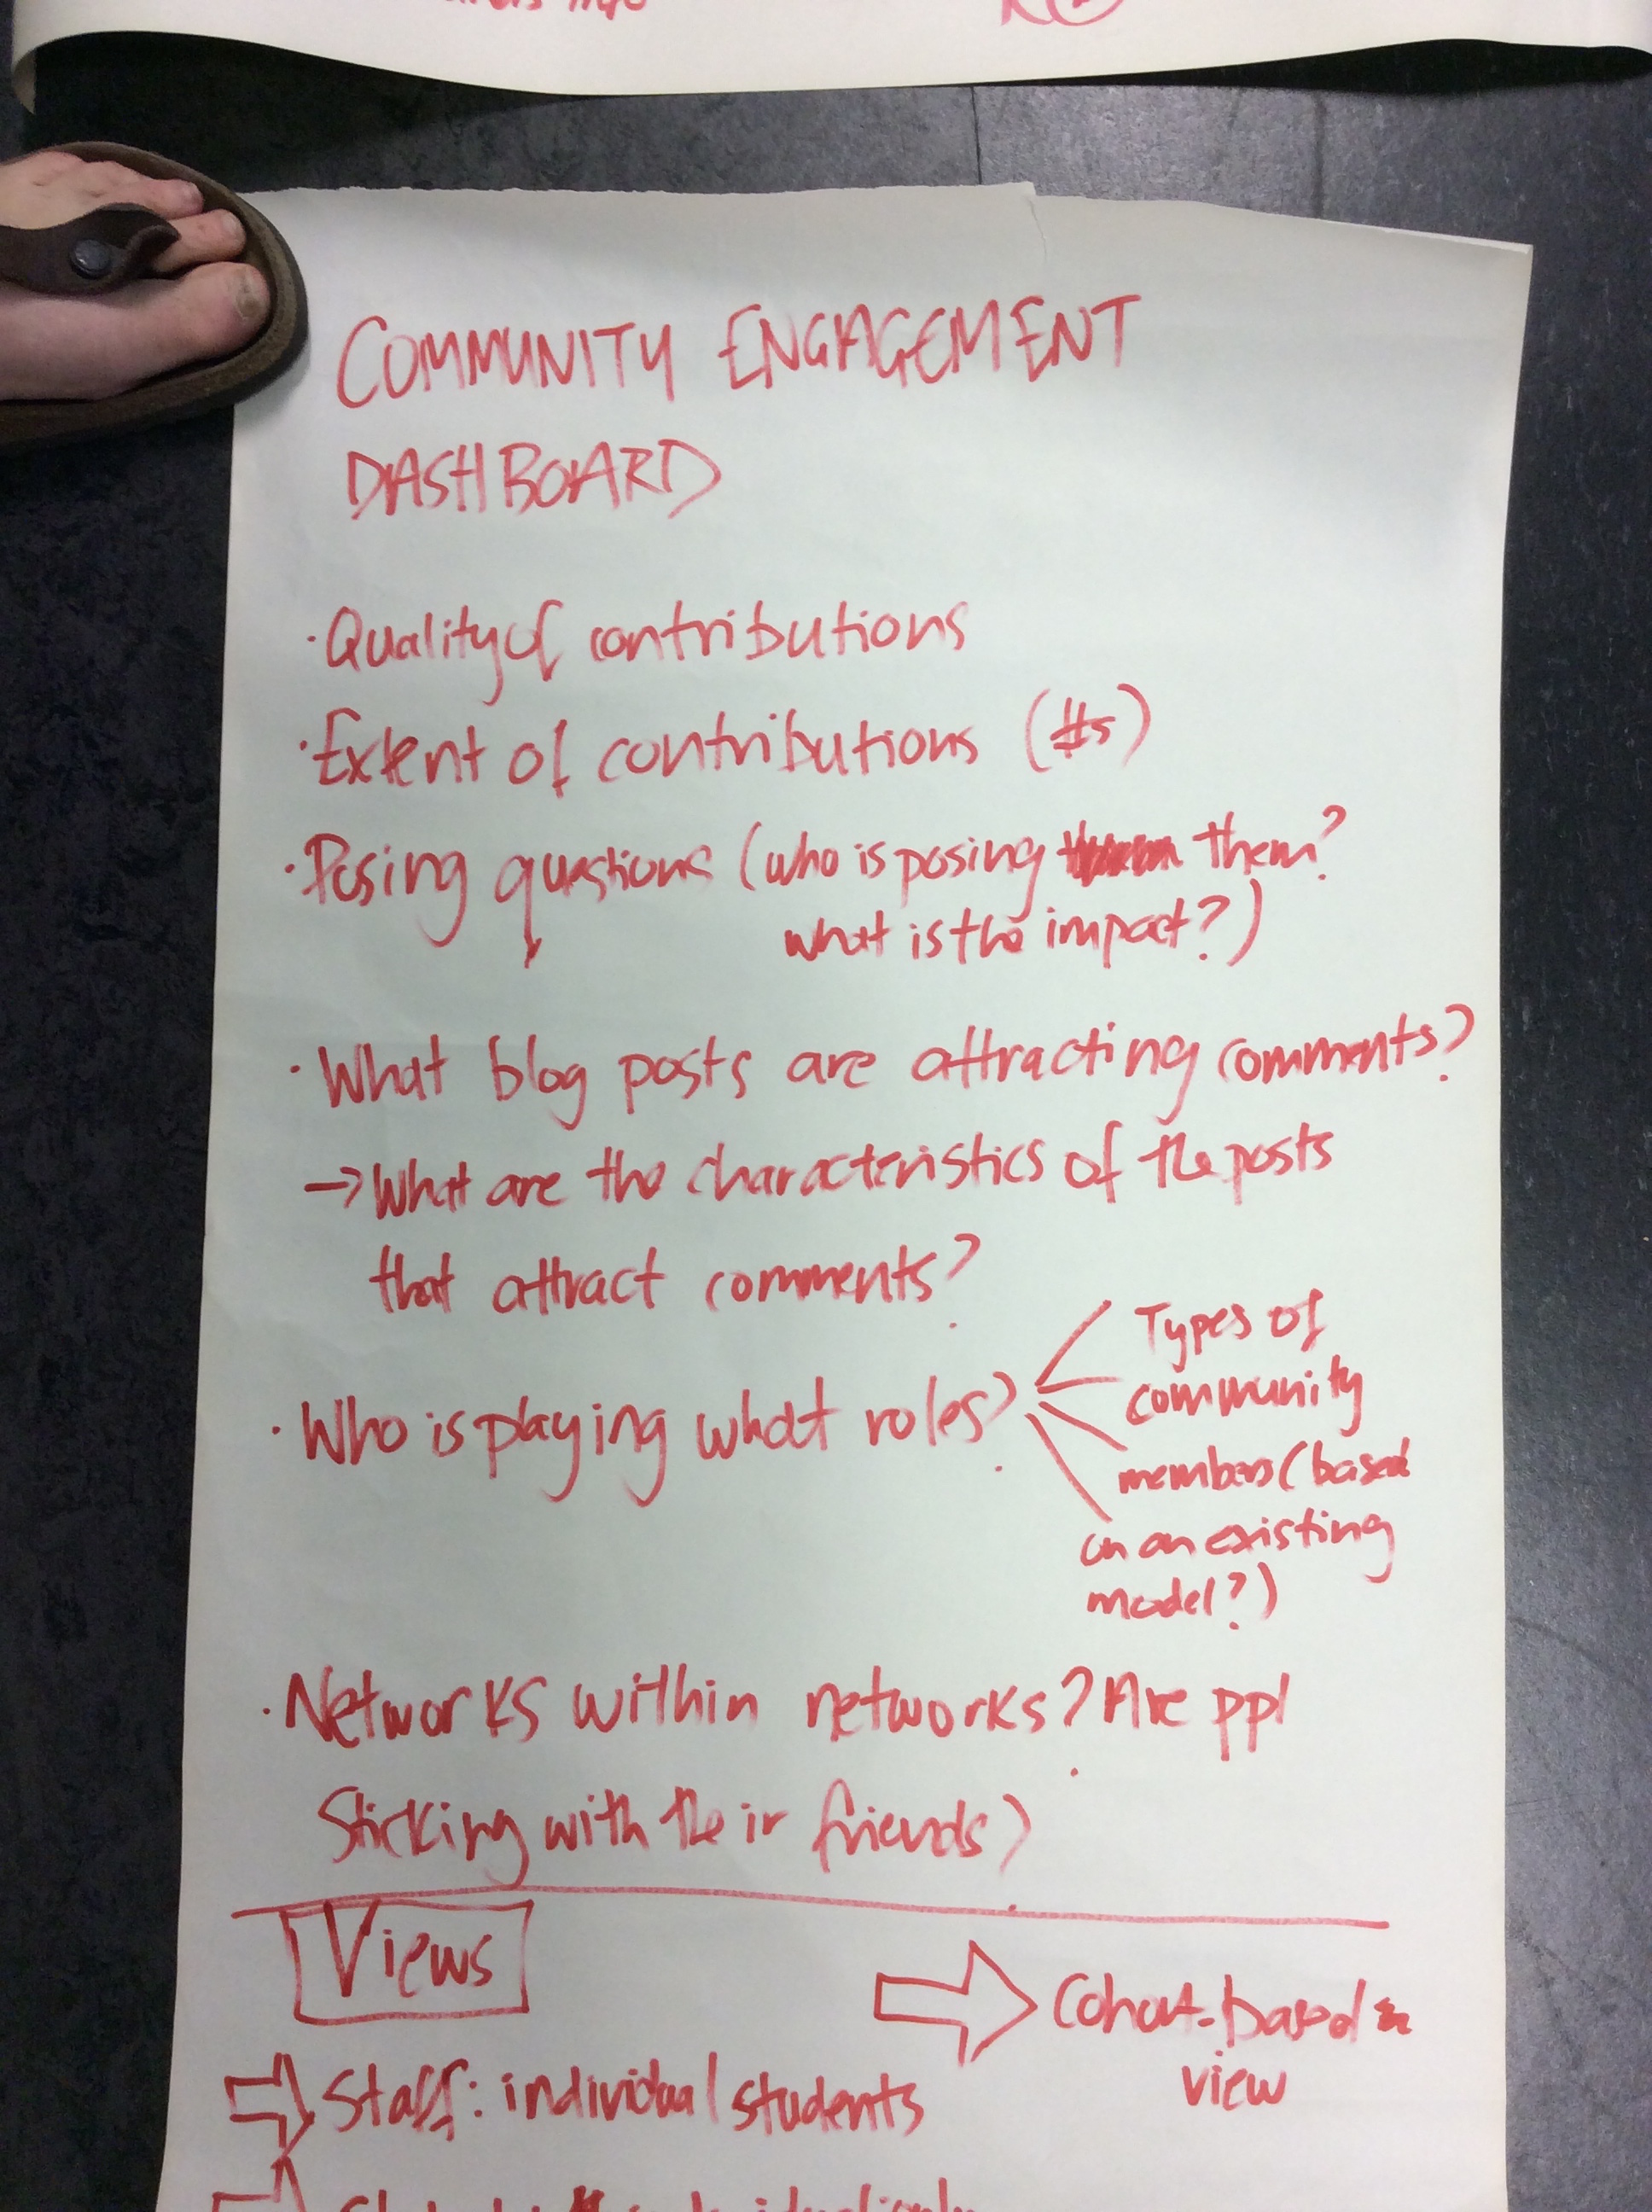 info
COMMUNITY ENGAGEMENT
DASHBOARD
· Quality of contributions
· Extent of contributions (#s)
· Posing questions (who is posing them?
what is the impact?)
· What blog posts are attracting comments?
→ What are the characteristics of the posts
that attract comments?
· Who is playing what roles?
Types of
community
members (based
on an existing
model?)
· Networks within networks? Are ppl
Sticking with their friends?
Views
Cohort-based
view
Staff: individual students